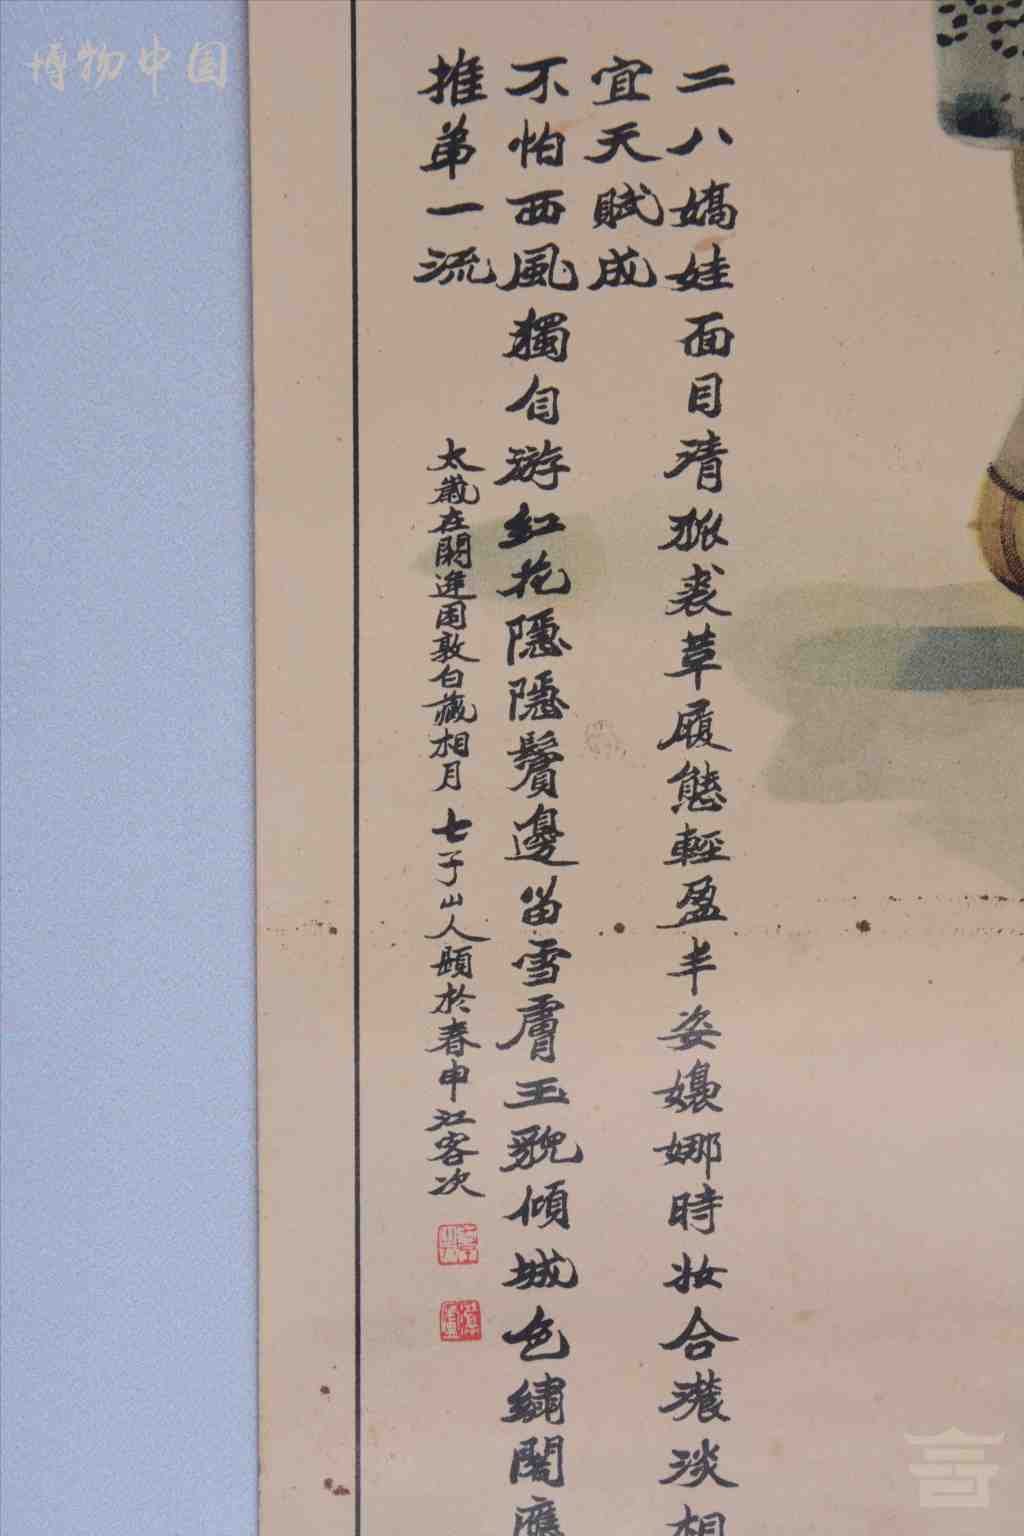 博物中国
二八嬌娃面目清狐裘草履態輕盈丰姿嬝娜時妝合濃淡相
宜天賦成
不怕西風獨自游紅花隱隱鬢邊留雪膚玉貌傾城色繡闥應
推弟一流
太嵗在閼逢困敦白藏相月七子山人題於春申江客次